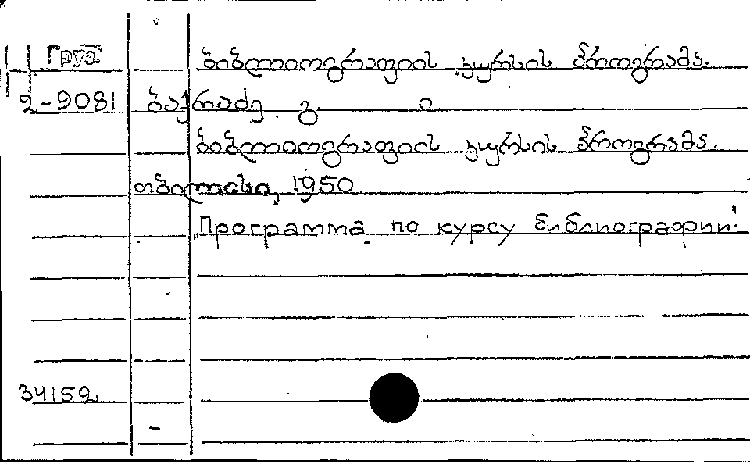 Груз
ბიბლიოგრაფიის კურსის პროგრამა.
2-9081 ბაქრაძე გ. ი
ბიბლიოგრაფიის კურსის პროგრამა.
თბილისი, 1950
„Программа по курсу библиографии“
34152